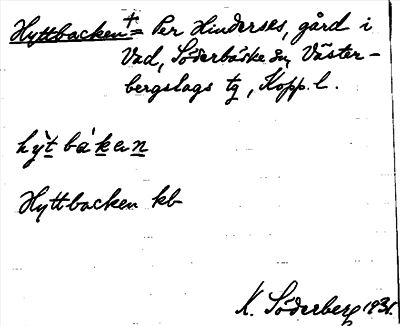 Hyttbacken + = Per Hinderses, gård i
Vad, Söderbärke sn, Väster-
bergslags tg, Kopp. l.
hy̆t bàkan
Hyttbacken kb
K. Söderberg 1931.